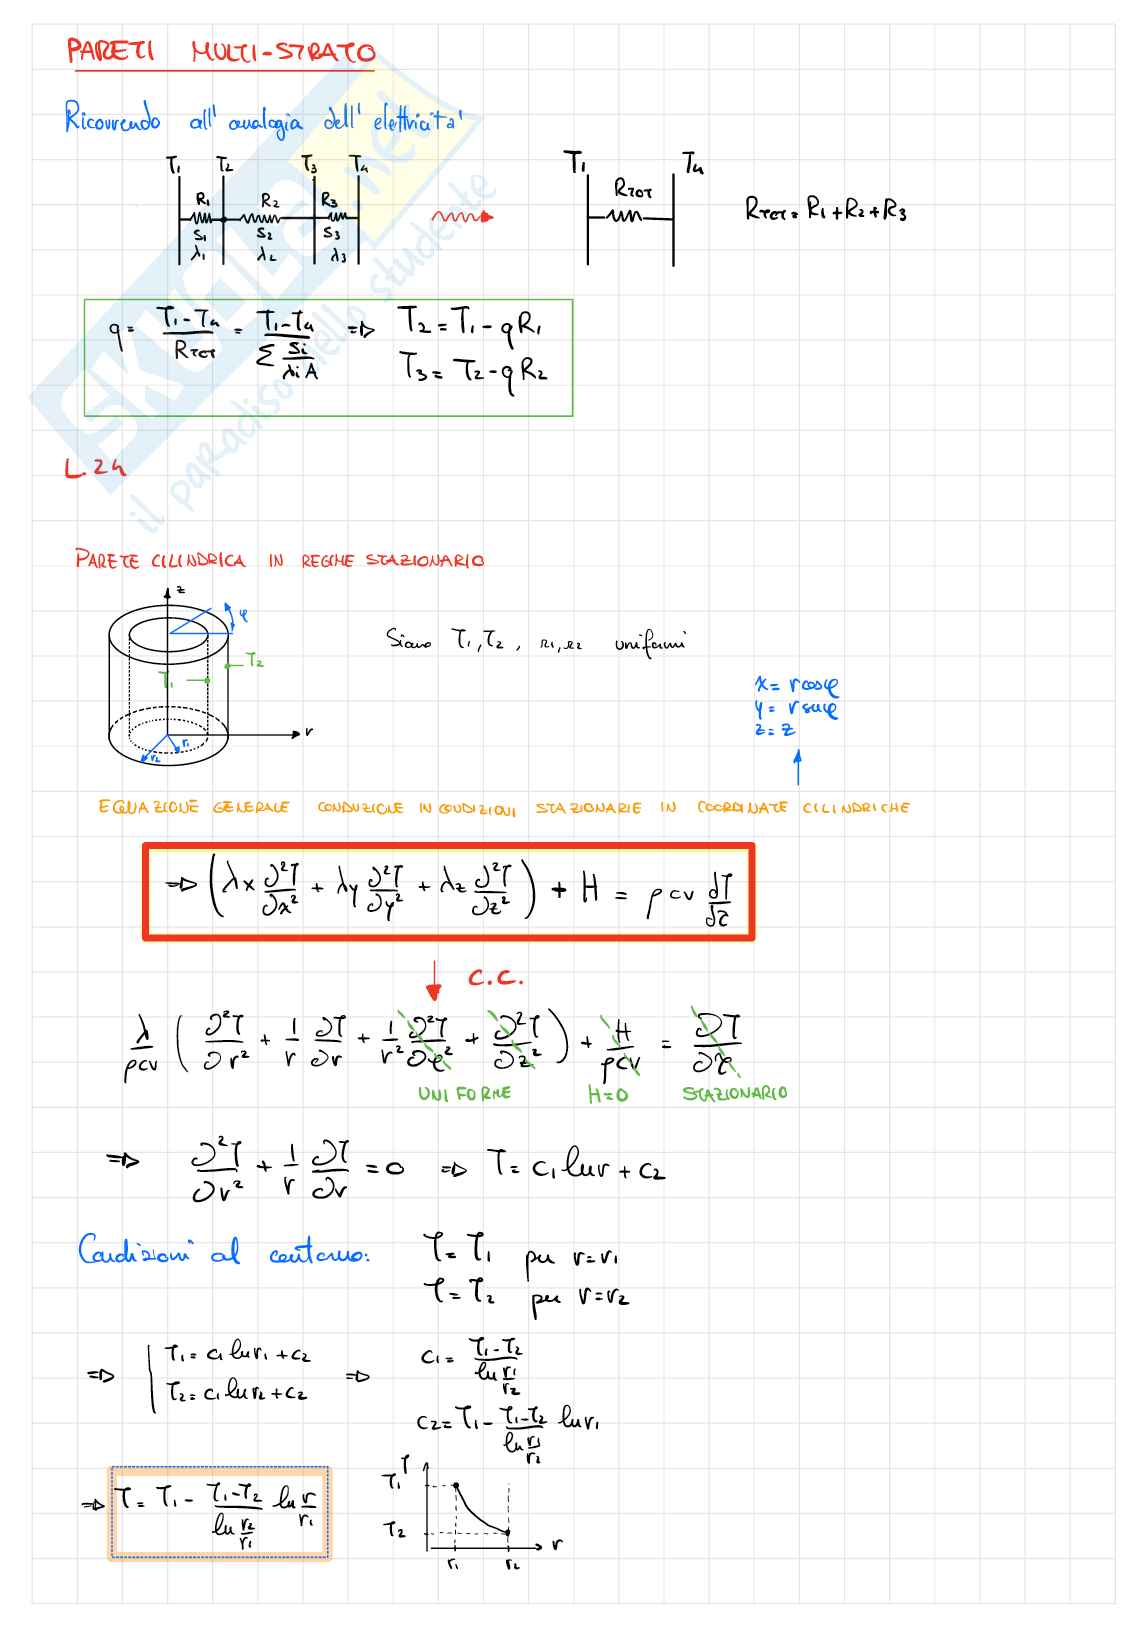 PARETI MULTI-STRATO
Ricorrendo all'analogia dell'elettricita'
T₁ T₂ T₃ T₄
R₁ R₂ R₃
S₁ S₂ S₃
λ₁ λ₂ λ₃
T₁ T₄
RTOT
RTOT = R₁ + R₂ + R₃
q = (T₁ - T₄)/RTOT = (T₁ - T₄)/(Σ Si/(λi A)) => T₂ = T₁ - qR₁
T₃ = T₂ - qR₂
L.24
PARETE CILINDRICA IN REGIME STAZIONARIO
z
φ
T₂
T₁
r
r₁
r₂
Siano T₁, T₂, r₁, r₂ uniformi
x = r cosφ
y = r sinφ
z = z
EQUAZIONE GENERALE CONDUZIONE IN CONDIZIONI STAZIONARIE IN COORDINATE CILINDRICHE
=> (λx ∂²T/∂x² + λy ∂²T/∂y² + λz ∂²T/∂z²) + H = ρcv dT/dτ
C.C.
λ/ρcv (∂²T/∂r² + 1/r ∂T/∂r + 1/r² ∂²T/∂φ² + ∂²T/∂z²) + H/ρcv = ∂T/∂τ
UNIFORME H=0 STAZIONARIO
=> ∂²T/∂r² + 1/r ∂T/∂r = 0 => T = c₁ ln r + c₂
Condizioni al contorno: T = T₁ per r = r₁
T = T₂ per r = r₂
=> T₁ = c₁ ln r₁ + c₂ => c₁ = (T₁ - T₂)/(ln r₁/r₂)
T₂ = c₁ ln r₂ + c₂
c₂ = T₁ - (T₁ - T₂)/(ln r₁/r₂) ln r₁
=> T = T₁ - (T₁ - T₂)/(ln r₂/r₁) ln r/r₁
T
T₁
T₂
r₁ r₂ r
SKUOLA.net
il paradiso dello studente